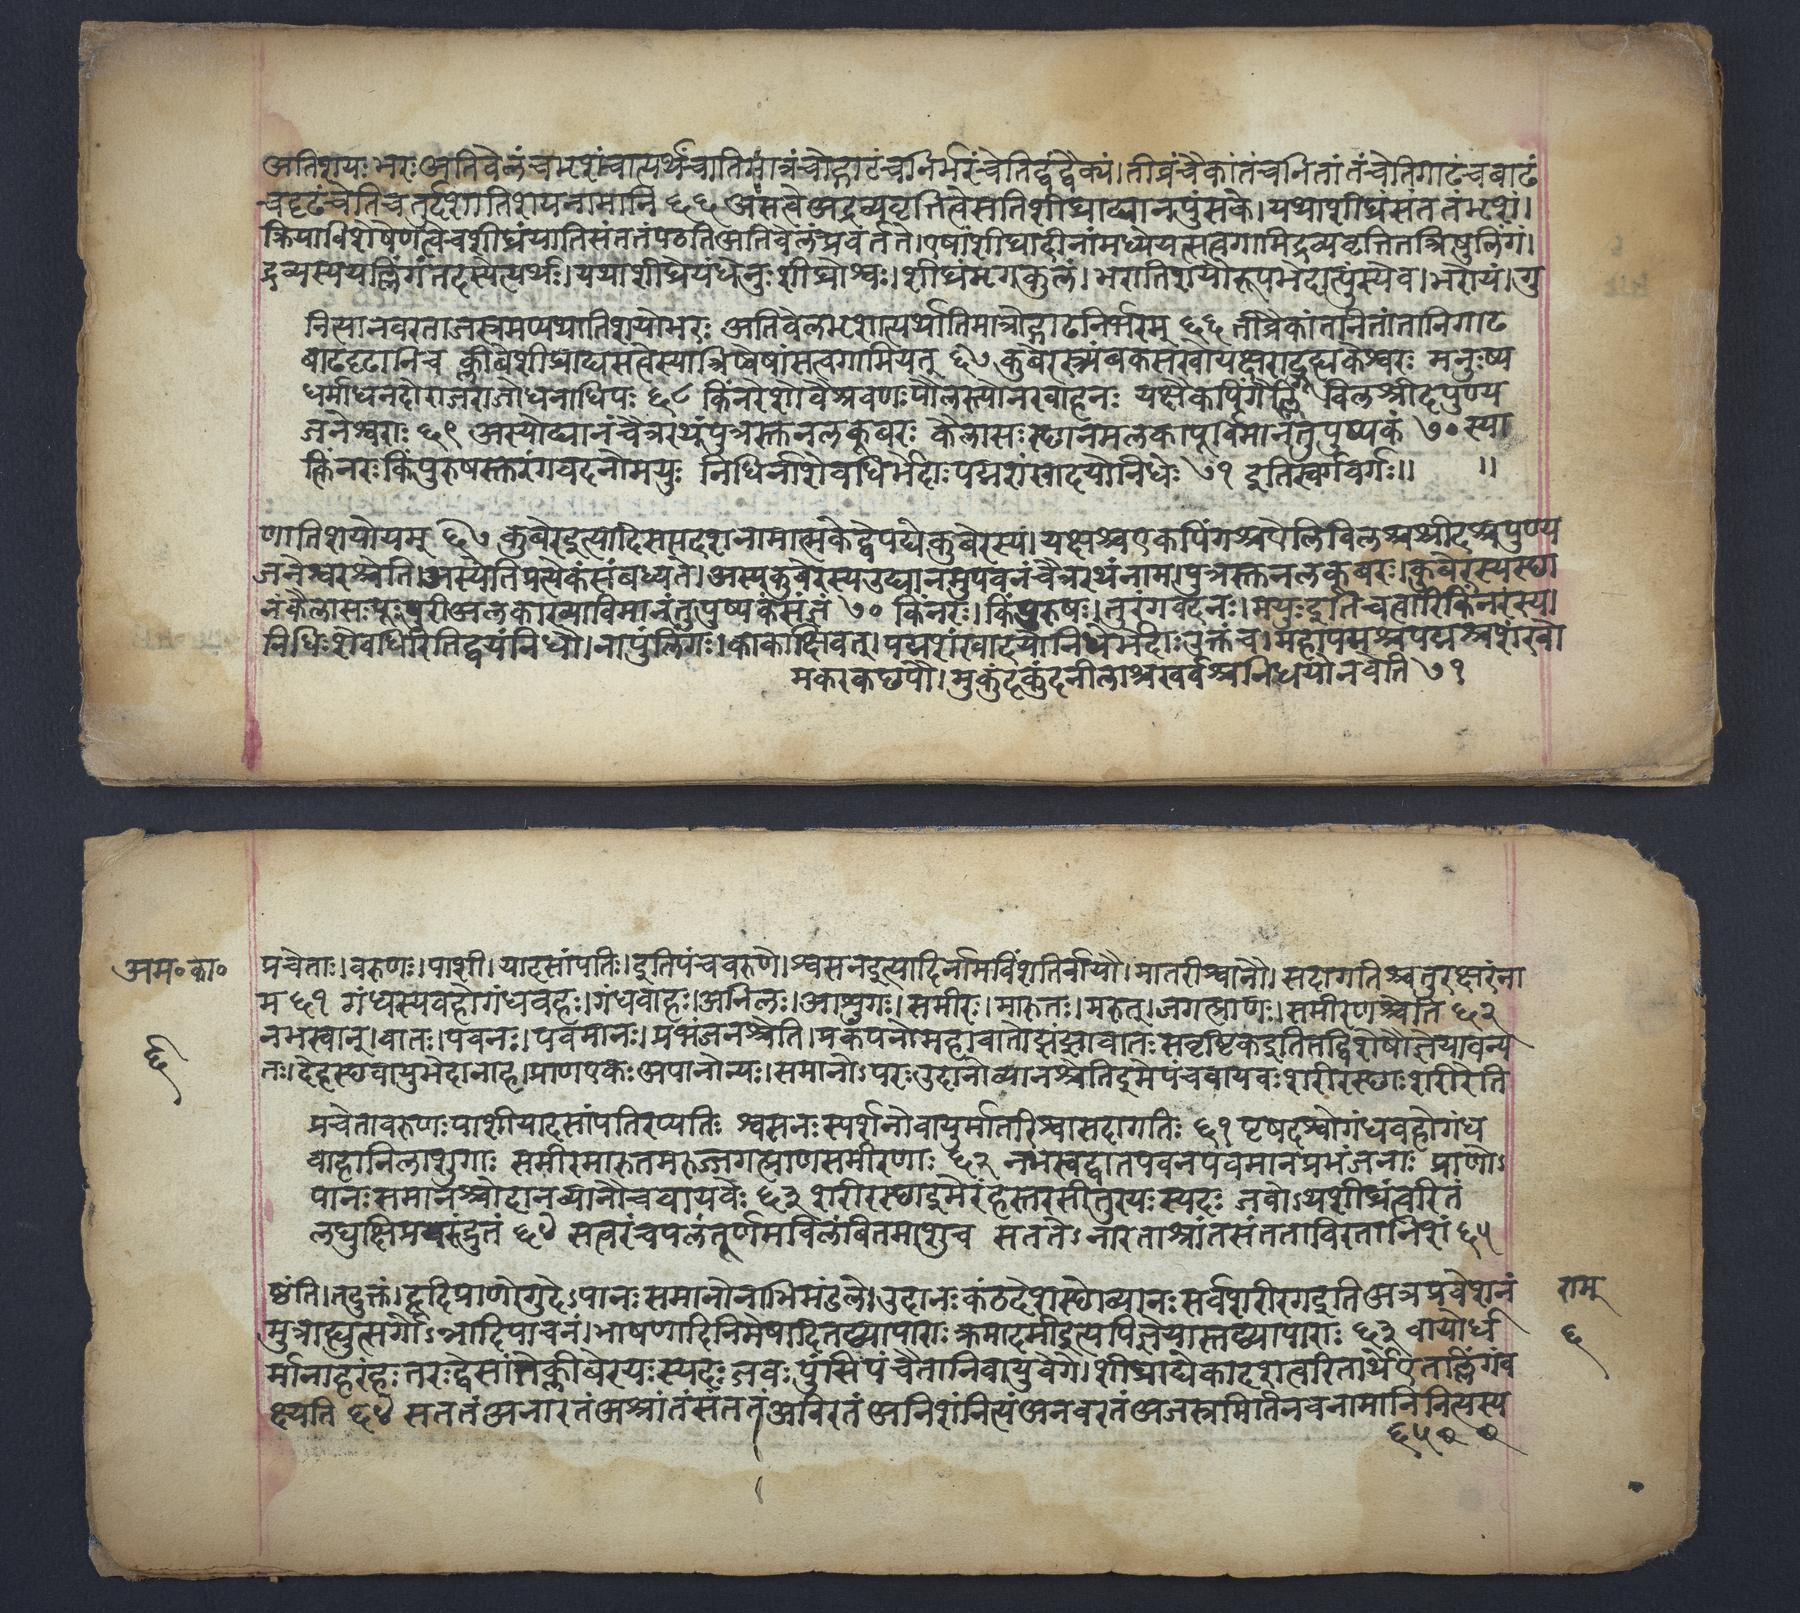 अतिशयः भरः अतिवेलं च भृशं चात्यर्थं चातिमात्रं चोद्गाढं च निर्भरं चेति द्वंद्वैक्यं। तीव्रं चैकांतं च नितांतं चेति गाढं च बाढं
च दृढं चेति चतुर्दशातिशयनामानि ६६ असत्वे अद्रव्यवृत्तित्वे सति शीघ्राद्यानपुंसके। यथा शीघ्रं संततं भृशं।
क्रियाविशेषणत्वे च शीघ्रं याति संततं पठति अतिवेलं प्रवर्तते। एषां शीघ्रादीनां मध्ये यत्सत्वगामि द्रव्यवृत्ति तत्त्रिषु लिंगं।
द्रव्यस्य यल्लिंगं तदस्येत्यर्थः। यथा शीघ्रेयं धेनुः शीघ्रोश्वः। शीघ्रं मृगकुलं। भरातिशयो रूपभेदात्पुंस्येव। भरोयं। गु
नित्यानवरताजस्रमप्यथातिशयोभरः अतिवेलभृशात्यर्थातिमात्रोद्गाढनिर्भरम् ६६ तीव्रैकांतनितांतानि गाढ
बाढदृढानि च क्लीबे शीघ्राद्यसत्वेस्यात्रिष्वेषां सत्वगामियत् ६७ कुबेरस्त्र्यंबकसखोयक्षराट्गुह्यकेश्वरः मनुष्य
धर्माधनदोराजराजोधनाधिपः ६८ किंनरेशोवैश्रवणः पौलस्त्योनरवाहनः यक्षैकपिंगैलविलश्रीदपुण्य
जनेश्वराः ६९ अस्योद्यानं चैत्ररथं पुत्रस्तुनलकूबरः कैलासः स्थानमलकापूर्विमानंतुपुष्पकं ७० स्या
त्किंनरः किंपुरुषस्तुरंगवदनोमयुः निधिर्नाशेवधिर्भेदाः पद्मशंखादयोनिधेः ७१ इतिस्वर्गवर्गः॥ ॥
णातिशयोयम् ६७ कुबेरइत्यादिसप्तदशनामात्मकेद्वेपद्येकुबेरस्य। यक्षश्चएकपिंगश्चऐलिविलश्चश्रीदश्चपुण्य
जनेश्वरश्चेति। अस्येतिप्रत्येकंसंबध्यते। अस्यकुबेरस्यउद्यानमुपवनंचैत्ररथंनाम। पुत्रस्तुनलकूबरः। कुबेरस्यस्था
नंकैलासः पूः पुरीअलकाख्याविमानंतुपुष्पकंसंज्ञं ७० किंनरः। किंपुरुषः। तुरंगवदनः। मयुः इतिचत्वारिकिंनरस्य।
निधिः शेवधिरितिद्वयंनिधौ। नापुलिंगः। काकाक्षिवत्। पद्मशंखादयोनिधेर्भेदाः उक्तंच। महापद्मश्चपद्मश्चशंखो
मकरकछपौ। मुकुंदकुंदनीलाश्चखर्वश्चनिधयोनवेति ७१
अम॰ का॰
प्रचेताः। वरुणः। पाशी। यादसांपतिः। इतिपंचवरुणे। श्वसनइत्यादिर्नामविंशतिर्वायौ। मातरीश्वानौ। सदागतिश्चतुरक्षरंना
म ६१ गंधस्यवहोगंधवहः। गंधवाहः। अनिलः। आशुगः। समीरः। मारुतः। मरुत्। जगत्प्राणः। समीरणश्चेति ६२
६
नभस्वान्। वातः। पवनः। पवमानः। प्रभंजनश्चेति। प्रकंपनोमहावातोझंझावातः सवृष्टिकइतितद्विशेषौज्ञेयावन्य
तः। देहस्थवायुभेदानाह। प्राणएकः अपानोन्यः। समानोऽपरः उदानोव्यानश्चेतिइमेपंचवायवः शरीरस्थाः शरीरेति
प्रचेतावरुणः पाशीयादसांपतिरप्पतिः श्वसनः स्पर्शनोवायुर्मातरिश्वासदागतिः ६१ पृषदश्वोगंधवहोगंध
वाहानिलाशुगाः समीरमारुतमरुज्जगत्प्राणसमीरणाः ६२ नभस्वद्वातपवनपवमानप्रभंजनाः प्राणोऽ
पानः समानश्चोदानव्यानौचवायवः ६३ शरीरस्थाइमेरंहस्तरसीतुरयः स्यदः जवोऽथशीघ्रंत्वरितं
लघुक्षिप्रमरंद्रुतं ६४ सत्वरंचपलंतूर्णमविलंबितमाशुच सततेऽनारताश्रांतसंतताविरतानिशं ६५
ष्ठंति। तदुक्तं। हृदिप्राणोगुदेऽपानः समानोनाभिमंडले। उदानः कंठदेशस्थोव्यानः सर्वशरीरगइति अन्नप्रवेशनं
मुत्राद्युत्सर्गोऽन्नादिपाचनं। भाषणादिनिमेषादितद्व्यापाराः क्रमादमीइत्यपिज्ञेयास्तद्व्यापाराः ६३ वायोर्ध
र्मानाहरंहः तरः द्वेसांतेक्लीबेरयः स्यदः जवः पुंसिपंचैतानिवायुवेगे। शीघ्राद्येकादशत्वरितार्थेएतल्लिंगंव
क्ष्यति ६४ सततंअनारतंअश्रांतंसंततंअविरतंअनिशंनित्यंअनवरतंअजस्रमितिनवनामानिनित्यस्य
६५
राम्
६